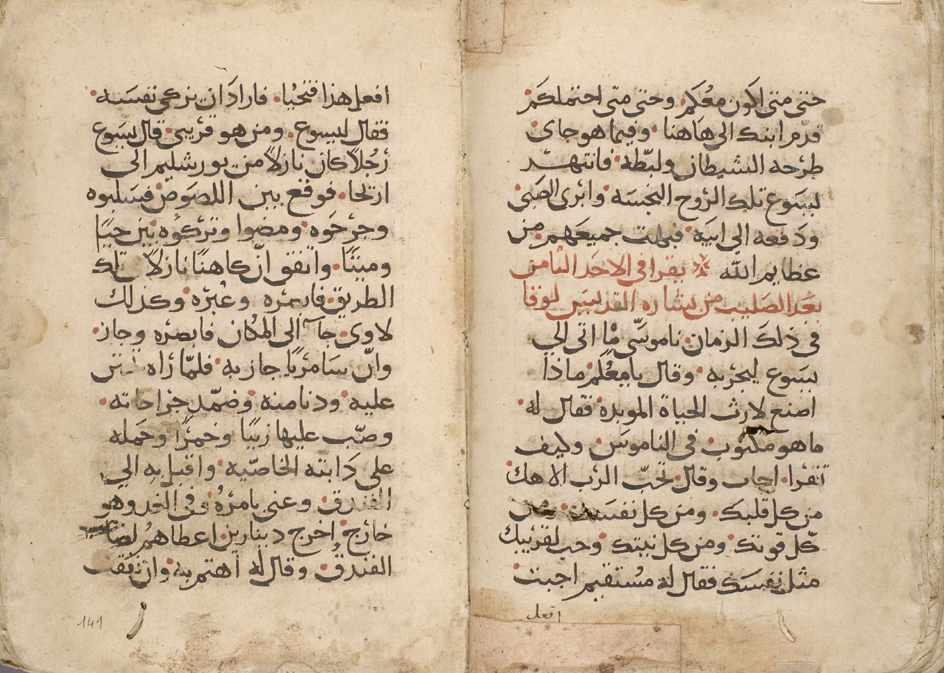 حتى متى اكون معكم وحتى متى احتملكم
قدم ابنك الى هاهنا وفيما هو جاى
طرحه الشيطان ولبطه فانتهر
يسوع تلك الروح النجسه وابرى الصبى
ودفعه الى ابيه فبهت جميعهم من
عظايم الله يقرا فى الاحد الثامن
بعد الصليب من بشاره القديس لوقا
فى ذلك الزمان ناموسى ما اتى الى
يسوع ليجربه وقال يا معلم ماذا
اصنع لارث الحياة الموبده فقال له
ما هو مكتوب فى الناموس وكيف
تقرا اجاب وقال تحب الرب الاهك
من كل قلبك ومن كل نفسك ومن
كل قوتك ومن كل نيتك وحب لقريبك
مثل نفسك فقال له مستقيم اجبت
افعل
افعل هذا فتحيا فاراد ان يزكى نفسه
فقال ليسوع ومن هو قريبى قال يسوع
رجلا كان نازلا من يورشليم الى
اريحا فوقع بين اللصوص فسلبوه
وجرحوه ومضوا وتركوه بين حيا
وميتا واتفق ان كاهنا نازلا تلك
الطريق فابصره وعبره وكذلك
لاوى جا الى المكان فابصره وجاز
وان سامريا جاز به فلما راه تحنن
عليه ودنا منه وضمد جراحاته
وصب عليها زيتا وخمرا وحمله
على دابته الخاصيه واقبل به الى
الفندق وعنى بامره وفى الغد وهو
خارج اخرج دينارين اعطاهم لصاحب
الفندق وقال له اهتم به وان نفقت
141